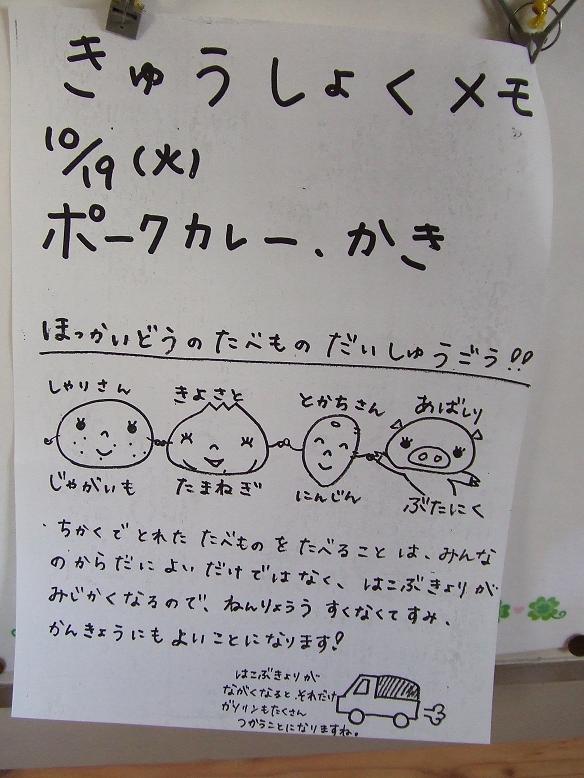 きゅうしょくメモ
10/19(火)
ポークカレー、かき
ほっかいどうのたべものだいしゅうごう!!
しゃりさん きよさと とかちさん あばしり
じゃがいも たまねぎ にんじん ぶたにく
・ちかくでとれたたべものをたべることは、みんな
のからだによいだけではなく、はこぶきょりが
みじかくなるので、ねんりょうう すくなくてすみ、
かんきょうにもよいことになります!
はこぶきょりが
ながくなると、それだけ
ガソリンもたくさん
つかうことになりますね。